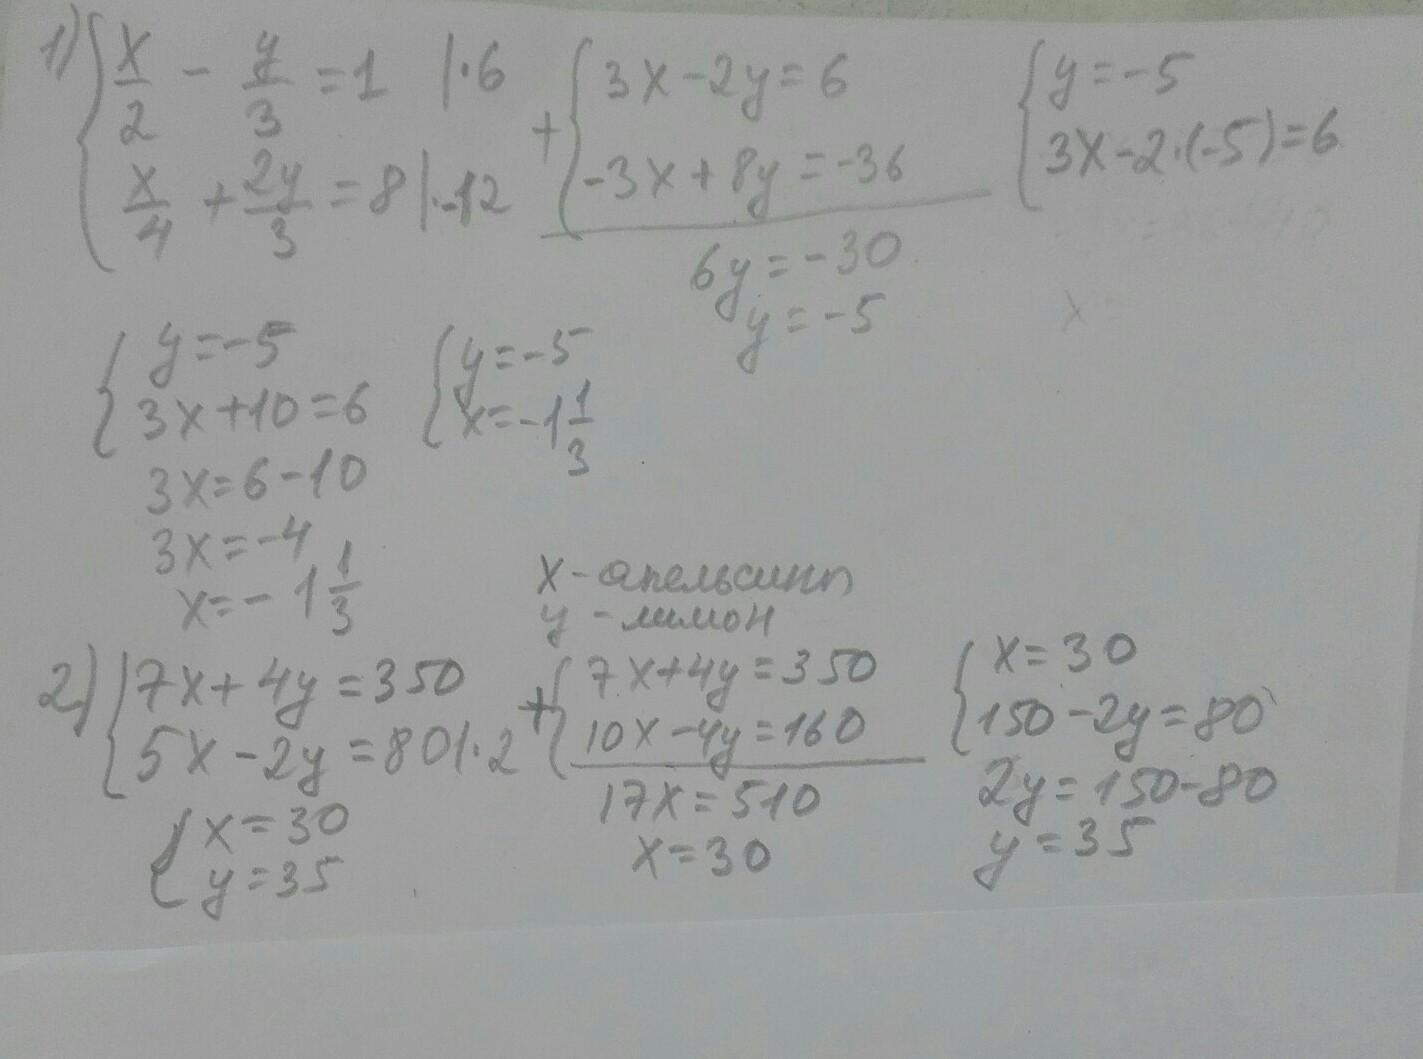 1) { x/2 - y/3 = 1 |·6
x/4 + 2y/3 = 8 |·-12
+ { 3x-2y=6
-3x+8y=-36
6y=-30
y=-5
{ y=-5
3x-2·(-5)=6
{ y=-5
3x+10=6
3x=6-10
3x=-4
x=-1 1/3
{ y=-5
x=-1 1/3
x-апельсин
y-лимон
2) { 7x+4y=350
5x-2y=80 |·2
+ { 7x+4y=350
10x-4y=160
17x=510
x=30
{ x=30
150-2y=80
2y=150-80
y=35
{ x=30
y=35